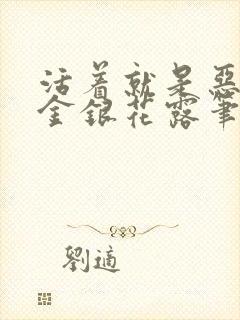 活着就是惡
金銀花露筆
劉適